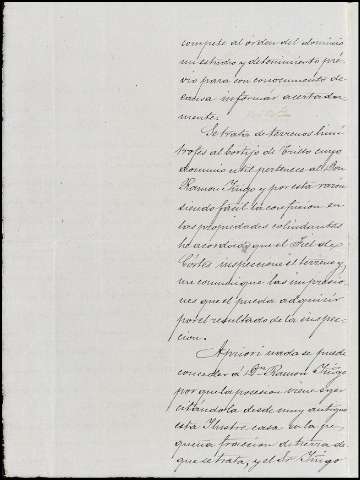 compete al órden del dominio
un estudio y detenimiento pré-
vio para con conocimiento de
causa informar acertada-
mente.
Se trata de terrenos limi-
trofes al Cortijo de cuyo
dominio util pertenece al Don
Ramon Iñigo y por esta razon
siendo fácil la confusion en
las propiedades colindantes
he acordado que el Fiel de
Córtes inspeccione el terreno y
me comunique las impresio-
nes que él pueda adquirir
por el resultado de la inspec-
cion.
Apriori nada se puede
conceder á Dn. Ramon Iñigo
por que la posesion viene ejer-
citándola desde muy antiguo
esta Ilustre casa en la pe-
queña fraccion de tierra de
que se trata, y el Sr. Iñigo